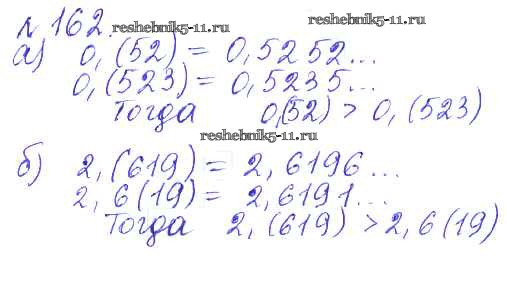 №162. reshebnik5-11.ru reshebnik5-11.ru
а) 0,(52) = 0,5252...
0,(523) = 0,5235...
Тогда 0,(52) > 0,(523)
reshebnik5-11.ru
б) 2,(619) = 2,6196...
2,6(19) = 2,6191...
Тогда 2,(619) > 2,6(19)